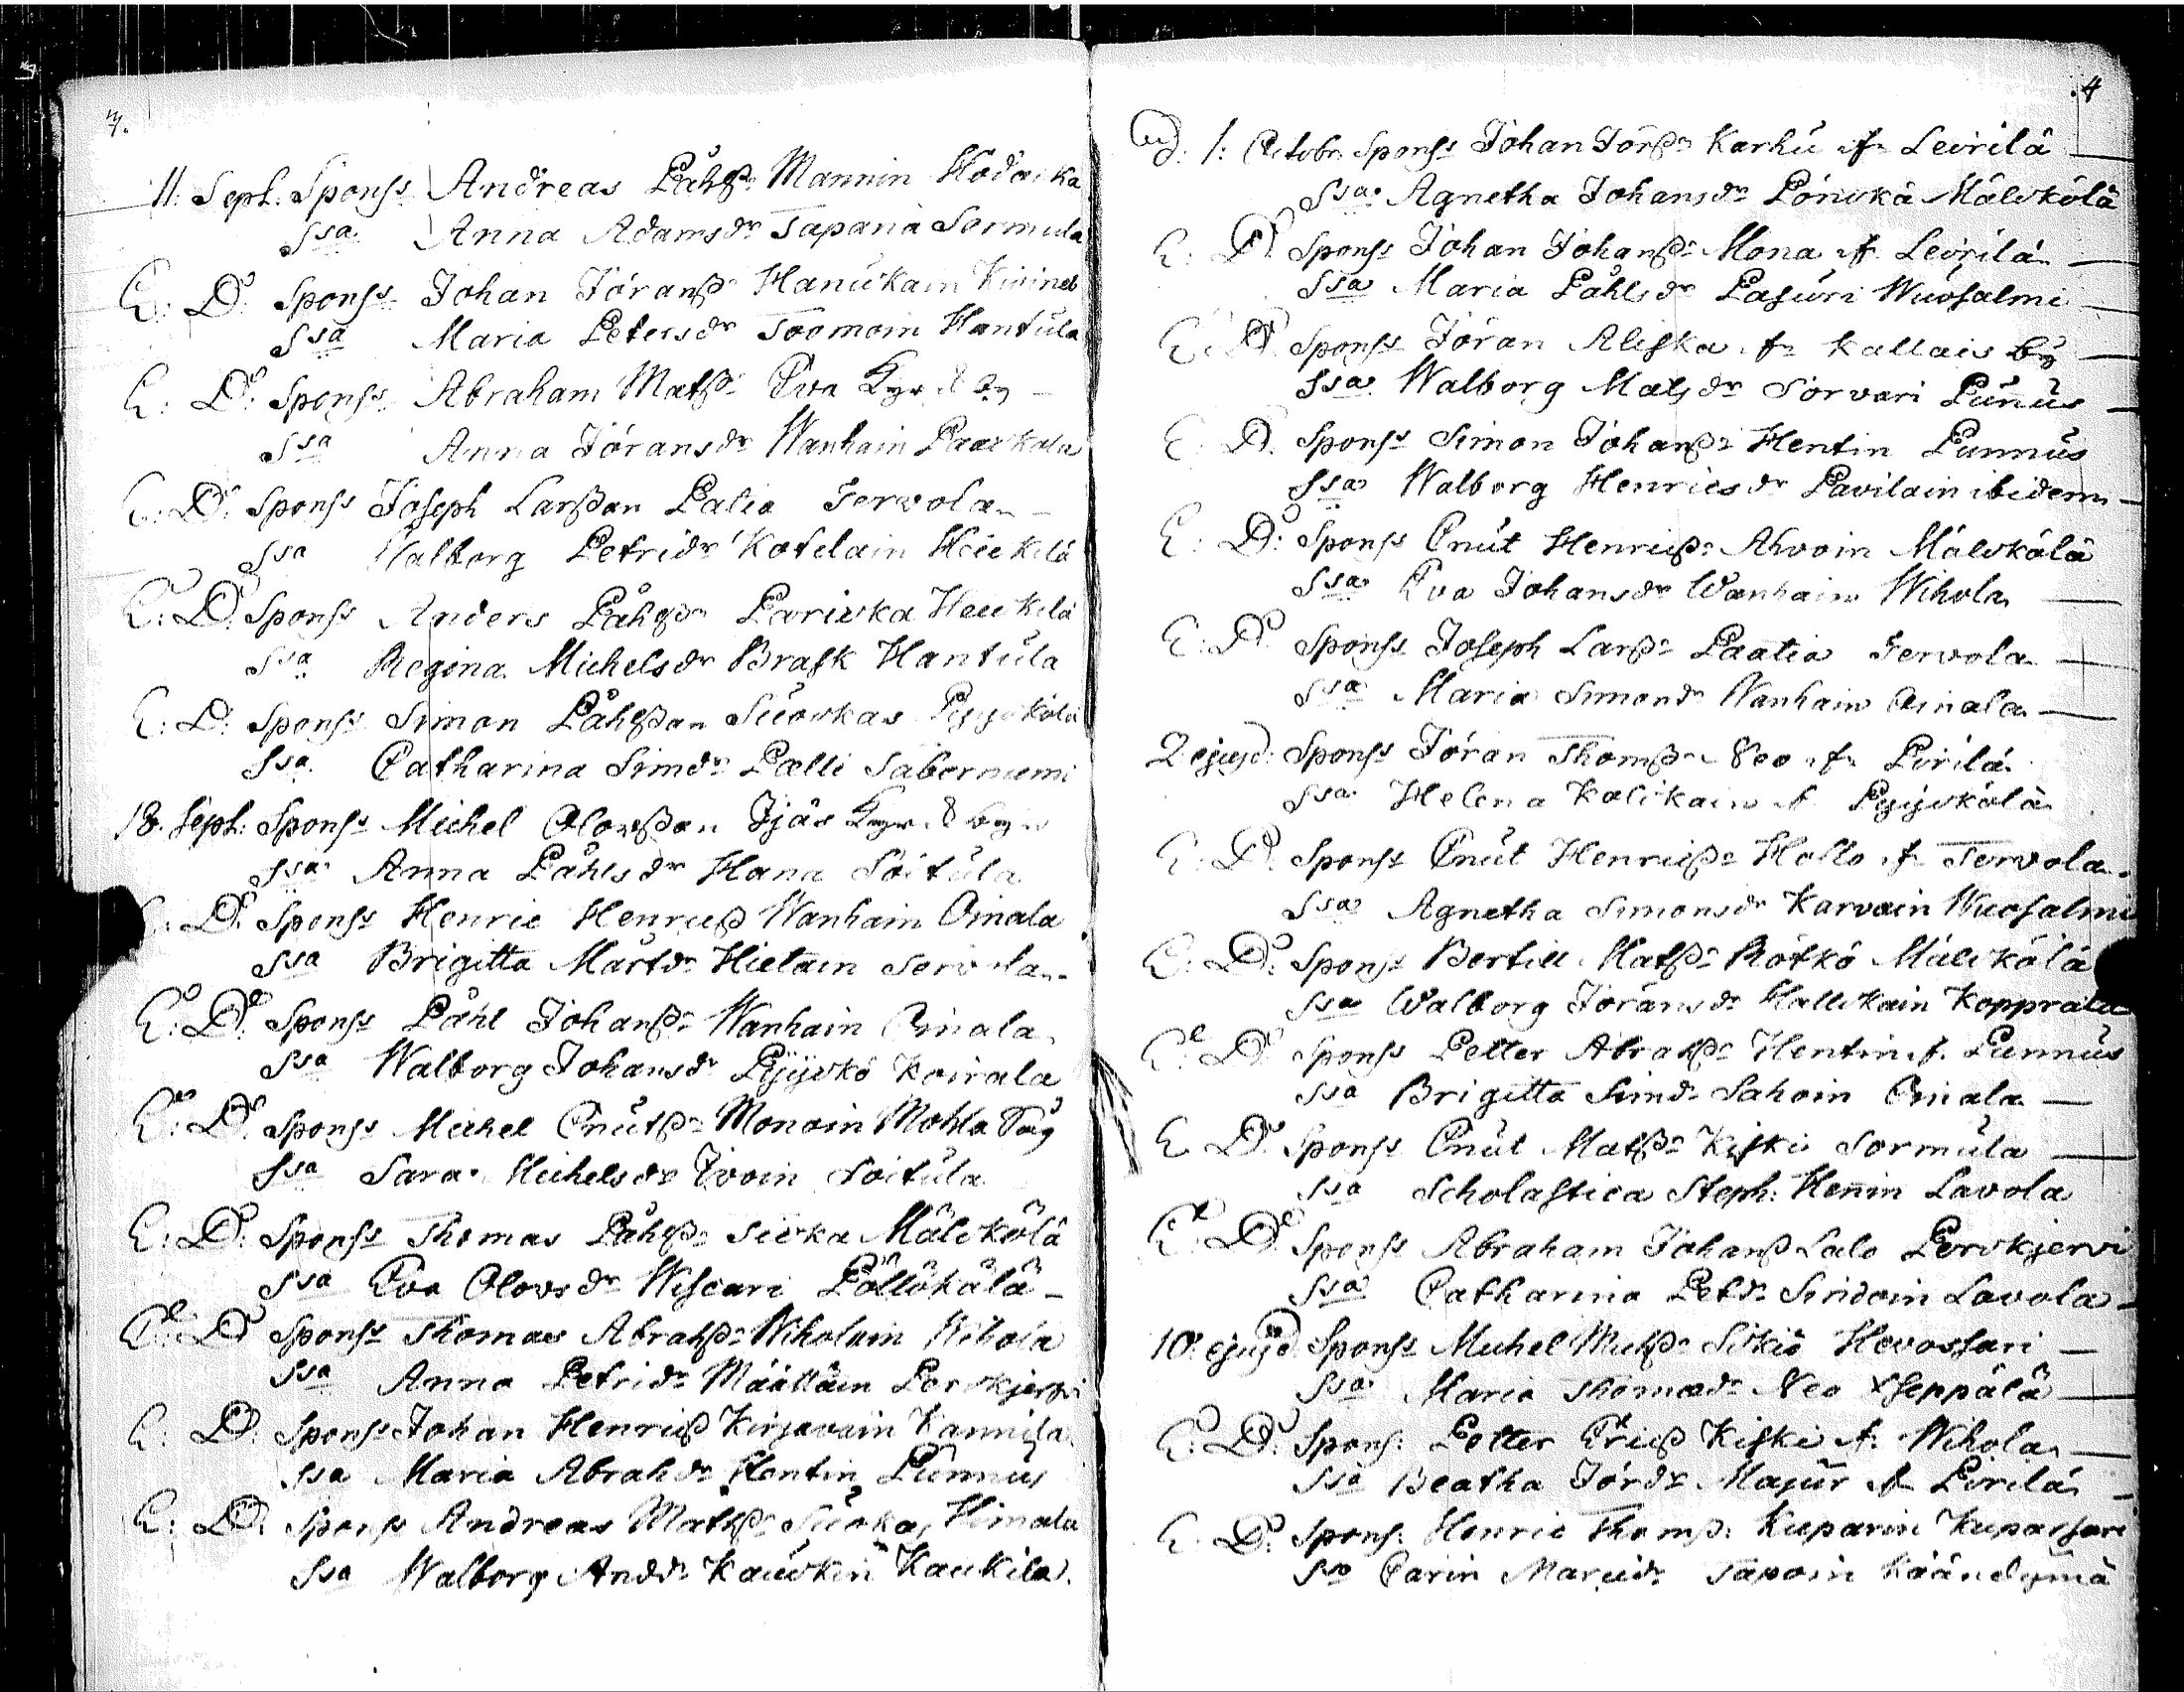 11. Sept. Sponss Andreas Påhlss: Mannin Hodacka
Ssa Anna Adamsdr Tapana Sormula
E: D: Sponss Johan Jöranss: Hanukain Kivineb
Ssa Maria Petersdr Toomoin Hantula
E: D: Sponss Abraham Matss: Eva Kyrckby
Ssa Anna Jöransdr Wanhain Paackola
E: D: Sponss Joseph Larsson Patia Tervola
Ssa Walborg Petridr Kotilain Heickilä
E: D: Sponss Anders Påhlss: Paricka Heickilä
Ssa Regina Michelsdr Brask Hantula
E: D: Sponss Simon Påhlsson Suockas Pyyckölä
Ssa Catharina Simdr Pælli Saberniemi
18. Sept: Sponss Michel Olovsson Ijäs Kyrckbyn
Ssa Anna Påhlsdr Hana Soitula
E: D: Sponss Henric Henricss Wanhain Oinala
Ssa Brigitta Mårtdr Hietain Tervola
E: D: Sponss Påhl Johanss: Wanhain Oinala
Ssa Walborg Johansdr Pyyckö Koirala
E: D: Sponss Michel Cnutss: Monoin Mohla Såg
Ssa Sara Michelsdr Ivoin Soitula
E: D: Sponss Thomas Påhlss: Sicka Mälckölä
Ssa Eva Olovsdr Wiscari Pöllökälä
E: D: Sponss Thomas Abrahss: Wiholain Wihola
Ssa Anna Petridr Määttäin Porckjervi
E: D: Sponss Johan Henricss Kirjavain Kannila
Ssa Maria Abrahdr Hentin Punnus
E: D: Sponss Andreas Matss: Suoka Himala
Ssa Walborg Anddr Kauckin Kaukila
4
d: 1: Octobr: Sponss Johan Jörss: Karhu fr Leirilä
Ssa Agnetha Johansdr Pönckä Mälckölä
E: D: Sponss Johan Johanss: Mona fr Leirilä
Ssa Maria Påhlsdr Pasuri Wuosalmi
E: D: Sponss Jöran Aliska fr Kallais by
Ssa Walborg Matsdr Sorvari Punus
E: D: Sponss Simon Johanss: Hentin Punnus
Ssa Walborg Henricsdr Pavilain ibidem
E: D: Sponss Cnut Henricss: Ahvoin Mälckölä
Ssa Eva Johansdr Wanhain Wihola
E: D: Sponss Joseph Larss: Paatia Tervola
Ssa Maria Simondr Wanhain Oinala
2 ejusd: Sponss Jöran Thomss: Neo fr Pirilä
Ssa Helena Kalikain f. Pyyckölä
E: D: Sponss Cnut Henricss: Hollo fr Tervola
Ssa Agnetha Simonsdr Karvain Wuosalmi
E: D: Sponss Bertill Matss: Rötkö Mälckölä
Ssa Walborg Jöransdr Hallckain Kopprala
E: D: Sponss Petter Abrahss: Hentin f. Punnus
Ssa Brigitta Simdr Sahoin Oinala
E: D: Sponss Cnut Matss: Kiski Sormula
Ssa Scholastica Steph: Henin Lavola
E: D: Sponss Abraham Johanss Lalo Porckjervi
Ssa Catharina Petdr Siridoin Lavola
10. ejusd: Sponss Michel Micss: Sikiö Hevossari
Ssa Maria Thomædr Neo Seppälä
E: D: Spons: Petter Ericss Kiski fr. Wihola
Ssa Beatha Jördr Majur fr Pirilä
E: D: Spons: Henric Thomss: Kuparin Kuparsari
Ssa Carin Marcidr Tapoin Käändymä